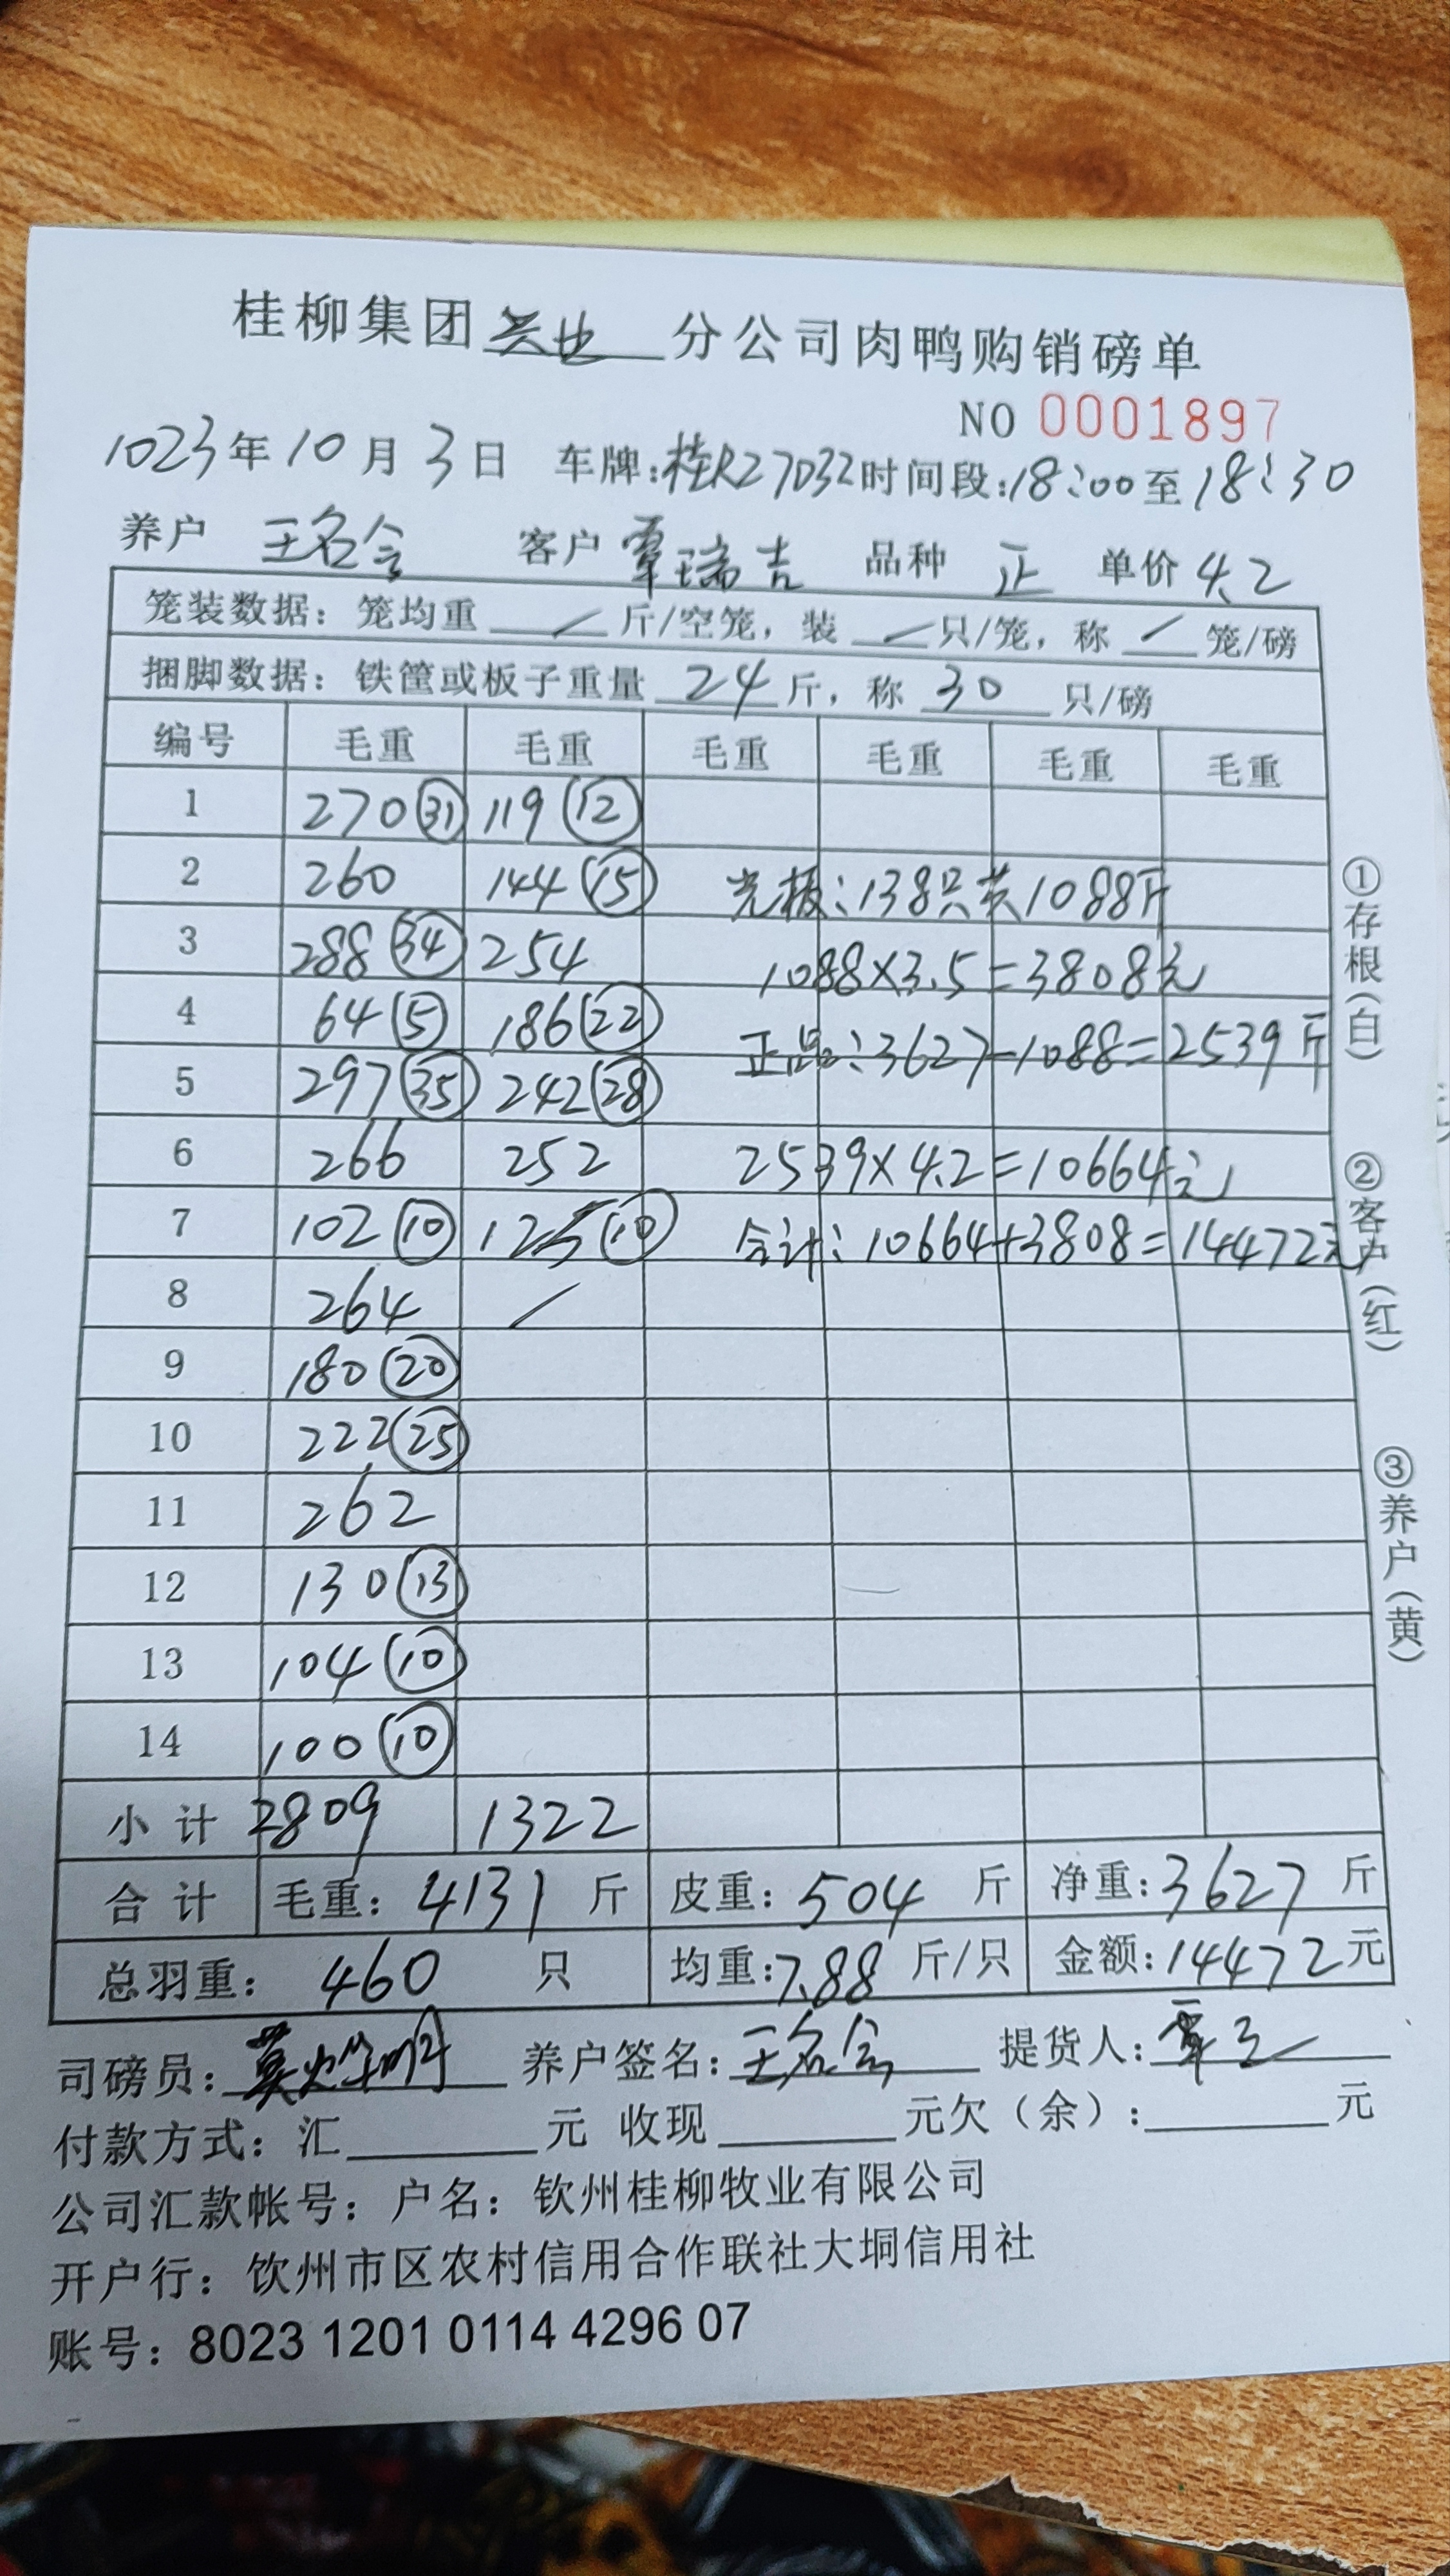 桂柳集团兴业分公司肉鸭购销磅单
NO 0001897
1023年10月3日 车牌:桂R27D32时间段:18:00至18:30
养户 王名会 客户 覃瑞吉 品种 正 单价 4.2
笼装数据: 笼均重 / 斤/空笼, 装 / 只/笼, 称 / 笼/磅
捆脚数据: 铁筐或板子重量 24 斤, 称 30 只/磅
编号 毛重 毛重 毛重 毛重 毛重 毛重
1 270㉛ 119⑫
2 260 144⑮ 光板:138只共1088斤
3 288㉞ 254 1088×3.5=3808元
4 64⑤ 186㉒ 正品:3627-1088=2539斤
5 297㉟ 242㉘
6 266 252 2539×4.2=10664元
7 102⑩ 125⑩ 合计:10664+3808=14472元
8 264 /
9 180⑳
10 222㉕
11 262
12 130⑬
13 104⑩
14 100⑩
小计 2809 1322
合计 毛重: 4131 斤 皮重: 504 斤 净重: 3627 斤
总羽重: 460 只 均重: 7.88 斤/只 金额: 14472元
司磅员: 养户签名: 王名会 提货人: 覃
付款方式: 汇 元 收现 元欠(余): 元
公司汇款帐号: 户名: 钦州桂柳牧业有限公司
开户行: 饮州市区农村信用合作联社大垌信用社
账号: 8023 1201 0114 4296 07
①存根(白)
②客户(红)
③养户(黄)